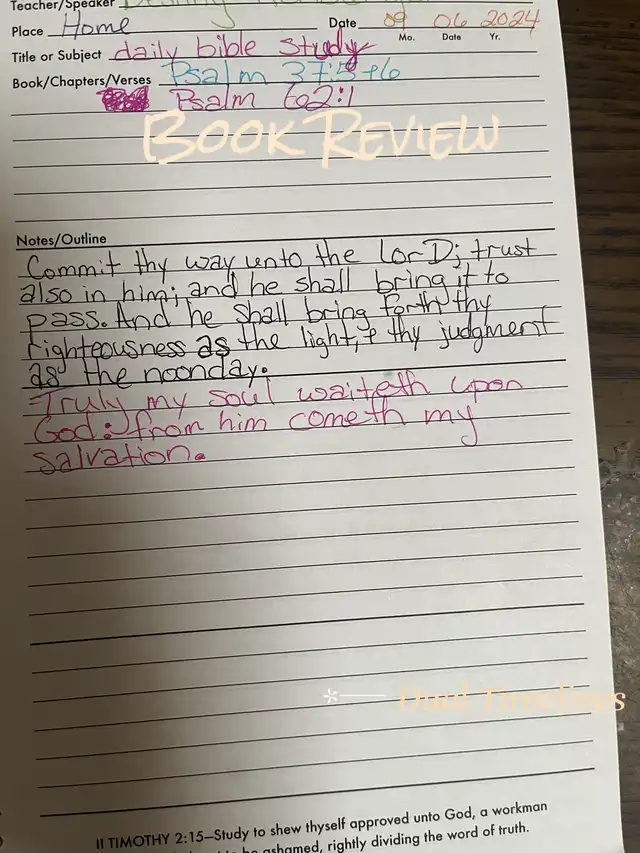 Teacher/Speaker
Place Home Date 09 06 2024
Mo. Date Yr.
Title or Subject daily bible study
Book/Chapters/Verses Psalm 37:5+6
Psalm 62:1
BOOK REVIEW
Notes/Outline
Commit thy way unto the lorD; trust
also in him; and he shall bring it to
pass. And he shall bring forth thy
righteousness as the light, & thy judgment
as the noonday.
Truly my soul waiteth upon
God: from him cometh my
salvation.
*— Dual Timelines
II TIMOTHY 2:15—Study to shew thyself approved unto God, a workman
ashamed, rightly dividing the word of truth.